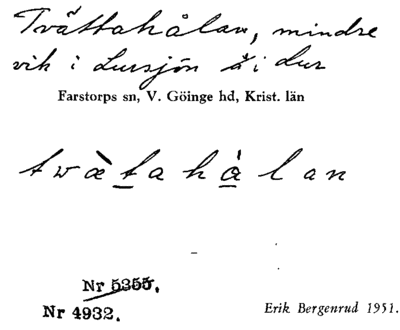 Tvättahålan, mindre
vik i Lursjön å i Lur
Farstorps sn, V. Göinge hd, Krist. län
tvæ̀tahålan
Nr 5355.
Nr 4932.
Erik Bergenrud 1951.